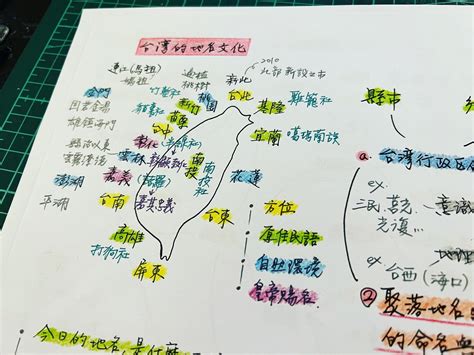 台湾的地名文化
連江(馬祖)
媽祖
遍植
桃樹
2010
北部新設立市
新北
金門
竹塹社
桃園
台北
基隆
雞籠社
縣市
固若金湯
新竹
雄鎮海門
苗栗
台中
宜蘭
噶瑪蘭族
彰化
雲林
南投
南投社
a. 台湾行政区
澎湖
嘉義
花蓮
ex.
平湖
台南
嘉其忠義
台東
方位
三民
光復…
高雄
原住民語
打狗社
自然環境
ex.
台西(海口)
屏東
皇帝賜名
② 聚落地名
的命名
今日的地名,是什麼